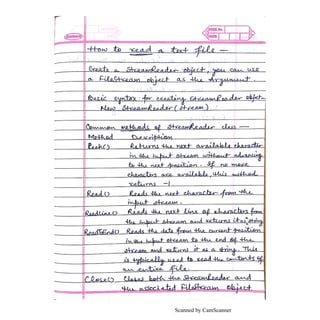 PAGE No.
DATE
How to read a text file —
Create a StreamReader object, you can use
a FileStream object as the Argument.
Basic syntax for creating StreamReader object-
New StreamReader (stream)
Common methods of StreamReader class —
Method Description
Peek() Returns the next available character
in the input stream without advancing
to the next position. If no more
characters are available, this method
returns -1.
Read() Reads the next character from the
input stream.
Readline() Reads the next line of characters from
the input stream and returns it
ReadToEnd() Reads the data from the current position
in the input stream to the end of the
stream and returns it as a string. This
is typically used to read the contents of
an entire file.
Close() Closes both the StreamReader and
the associated FileStream object
Scanned by CamScanner